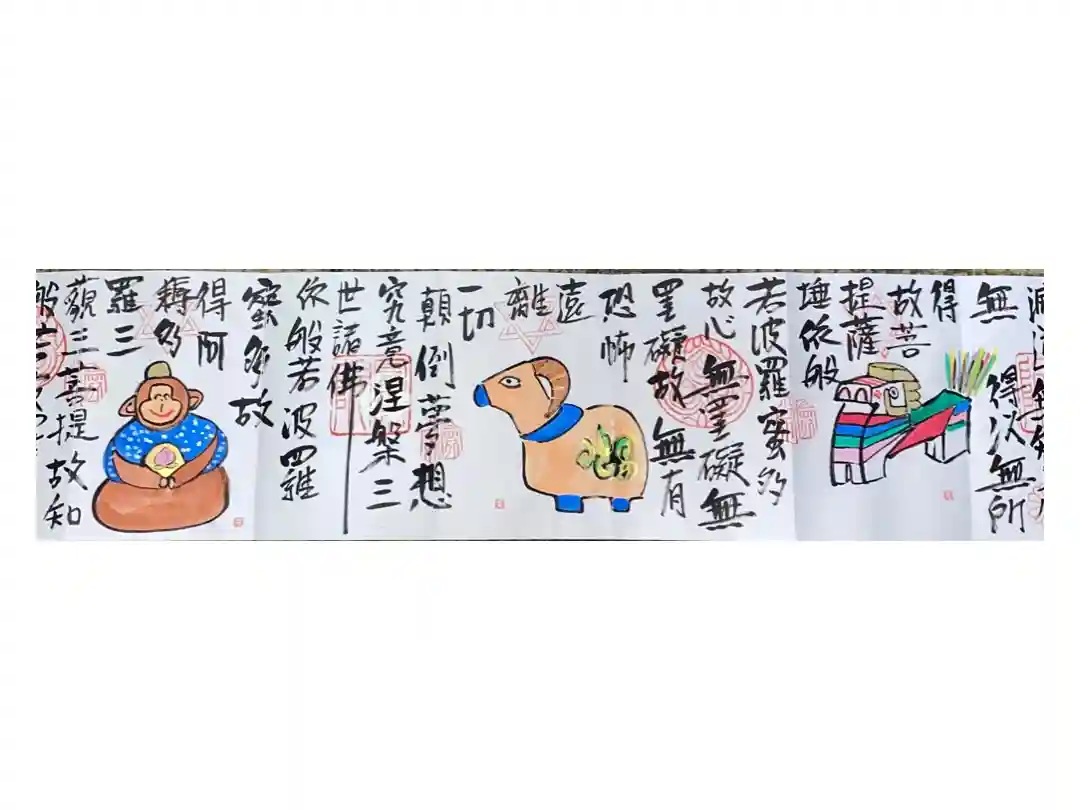 無
得以無所
得
故菩
提薩
埵依般
若波羅蜜多
故心無罣礙無
罣礙故無有
恐怖
遠
離
一切
顛倒夢想
究竟涅槃三
世諸佛
依般若波羅
蜜多故
得阿
耨多
羅三
藐三菩提故知